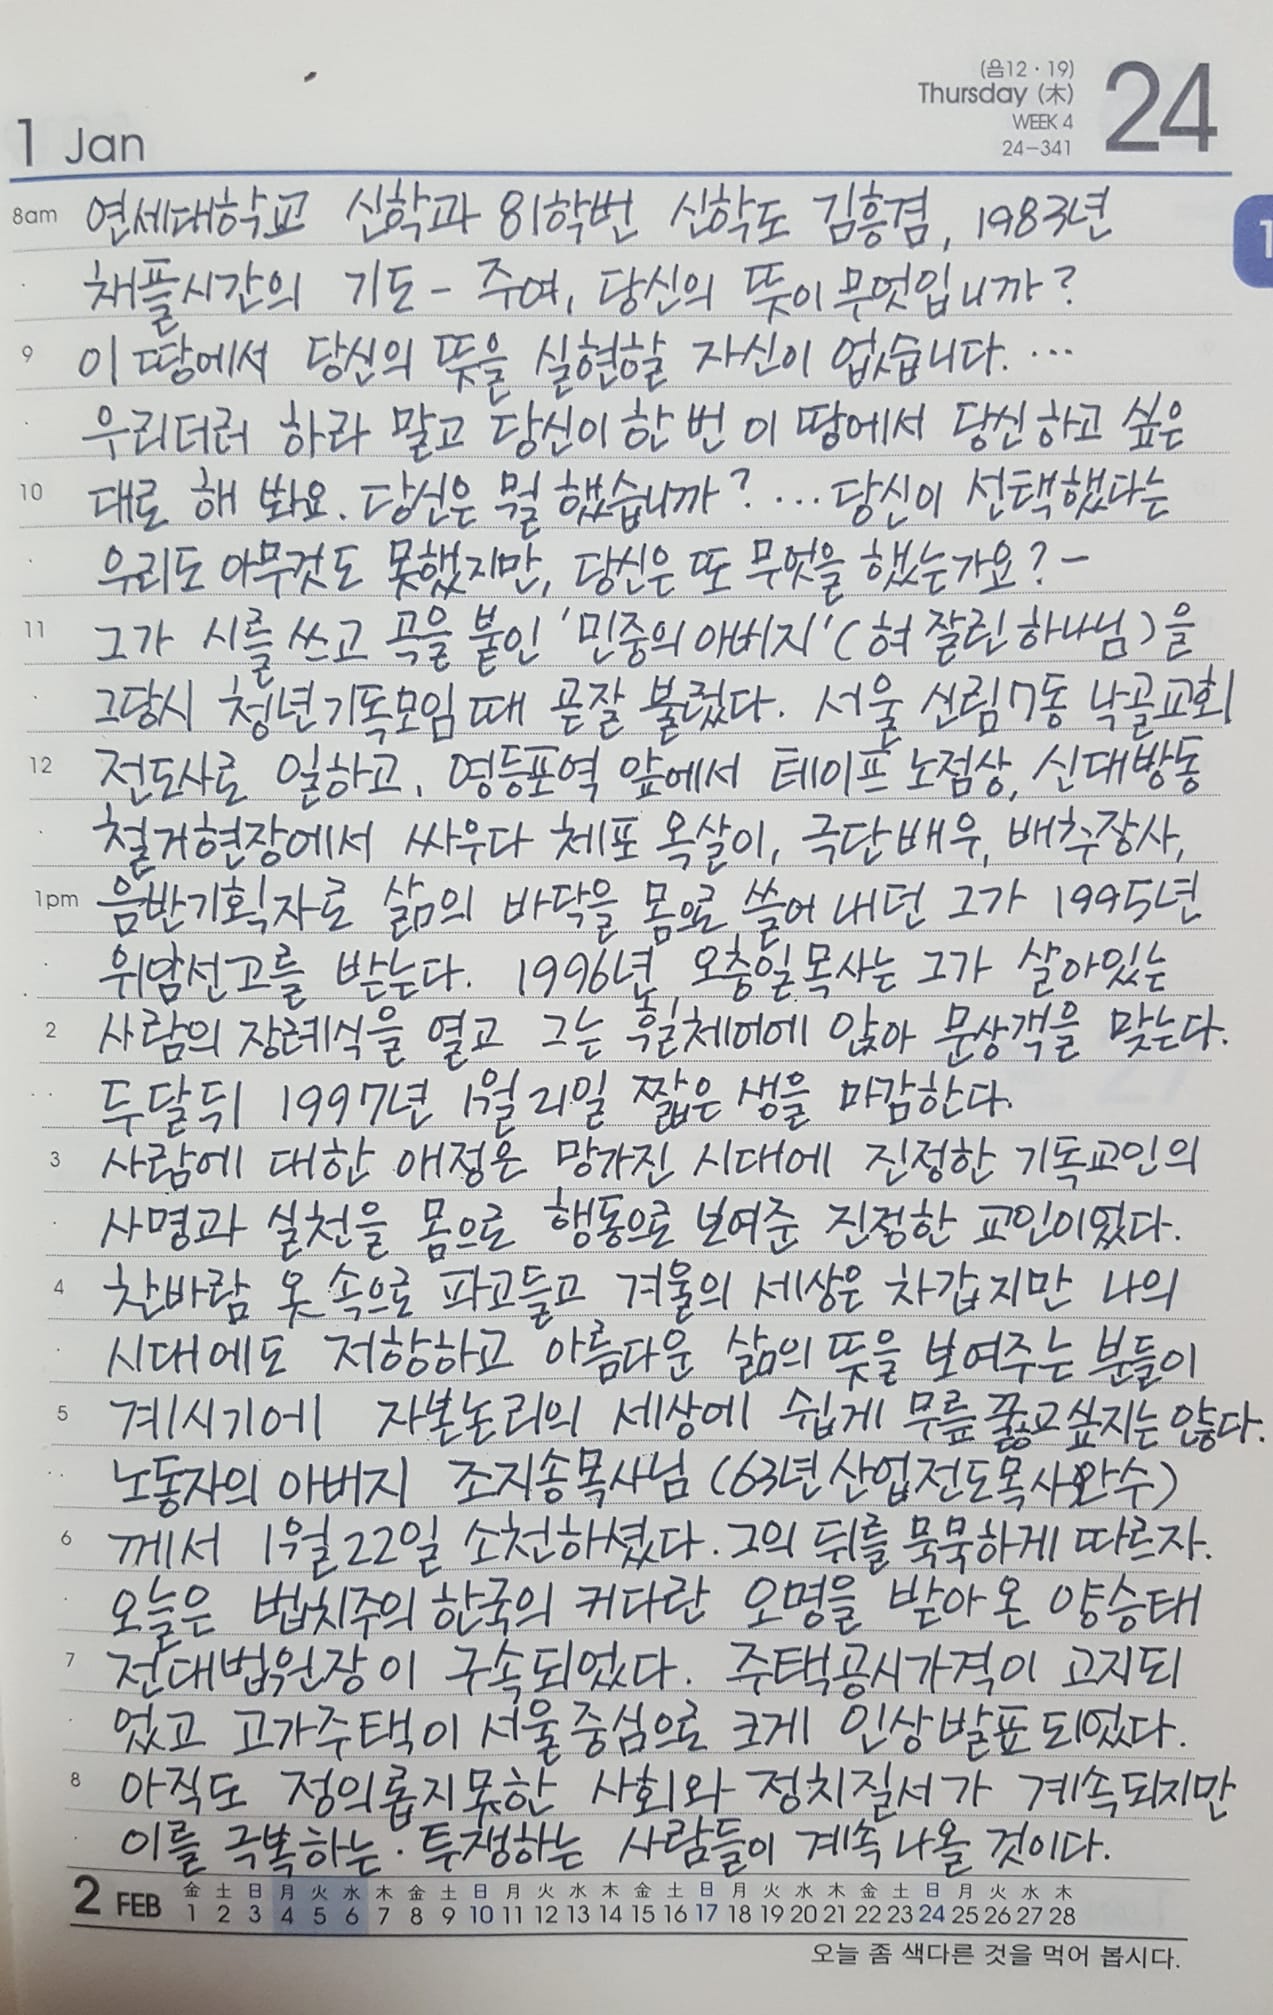 (음12·19)
Thursday (木)
WEEK 4
24-341
24
1 Jan
1
8am 연세대학교 신학과 81학번 신학도 김흥겸, 1983년
채플시간의 기도 - 주여, 당신의 뜻이 무엇입니까?
9 이 땅에서 당신의 뜻을 실현할 자신이 없습니다. ...
우리더러 하라 말고 당신이 한 번 이 땅에서 당신 하고 싶은
10 대로 해 봐요. 당신은 뭘 했습니까? ... 당신이 선택했다는
우리도 아무것도 못했지만, 당신은 또 무엇을 했는가요? -
11 그가 시를 쓰고 곡을 붙인 '민중의 아버지' (혀 잘린 하나님) 을
그당시 청년기독모임 때 곧잘 불렀다. 서울 신림7동 낙골교회
12 전도사로 일하고, 영등포역 앞에서 테이프 노점상, 신대방동
철거현장에서 싸우다 체포 옥살이, 극단배우, 배추장사,
1pm 음반기획자로 삶의 바닥을 몸으로 쓸어 내던 그가 1995년
위암선고를 받는다. 1996년, 오충일목사는 그가 살아있는
2 사람의 장례식을 열고 그는 휠체어에 앉아 문상객을 맞는다.
두달뒤 1997년 1월 21일 짧은 생을 마감한다.
3 사람에 대한 애정은 망가진 시대에 진정한 기독교인의
사명과 실천을 몸으로 행동으로 보여준 진정한 교인이었다.
4 찬바람 옷 속으로 파고들고 겨울의 세상은 차갑지만 나의
시대에도 저항하고 아름다운 삶의 뜻을 보여주는 분들이
5 계시기에 자본논리의 세상에 쉽게 무릎 꿇고 싶지는 않다.
노동자의 아버지 조지송목사님 (63년 산업전도목사안수)
6 께서 1월 22일 소천하셨다. 그의 뒤를 묵묵하게 따르자.
오늘은 법치주의 한국의 커다란 오명을 받아 온 양승태
7 전대법원장이 구속되었다. 주택공시가격이 고지되
었고 고가주택이 서울중심으로 크게 인상발표 되었다.
8 아직도 정의롭지못한 사회와 정치질서가 계속되지만
이를 극복하는 · 투쟁하는 사람들이 계속 나올 것이다.
2 FEB
金 土 日 月 火 水 木 金 土 日 月 火 水 木 金 土 日 月 火 水 木 金 土 日 月 火 水 木
1 2 3 4 5 6 7 8 9 10 11 12 13 14 15 16 17 18 19 20 21 22 23 24 25 26 27 28
오늘 좀 색다른 것을 먹어 봅시다.